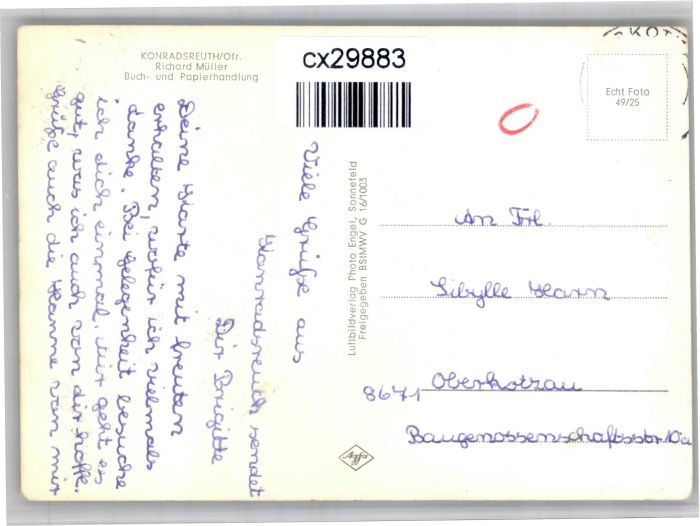 KONRADSREUTH/Ofr.
Richard Müller
Buch- und Papierhandlung
cx29883
KOT
Echt Foto
49/25
Viele Grüße aus
Konradsreuth sendet
Dir Brigitte
Deine Karte mit freuten
erhalten, wofür ich vielmals
danke. Bei Gelegenheit besuche
ich dich einmal. Mir geht es
gut, was ich auch von dir hoffe.
Grüße auch die Hanne von mir
Luftbildverlag Photo Engel, Sonnefeld
Freigegeben BStMWV G 16/1003
An Frl.
Sibylle Horn
8671 Oberkotzau
Baugenossenschaftsstr. 10a
Agfa